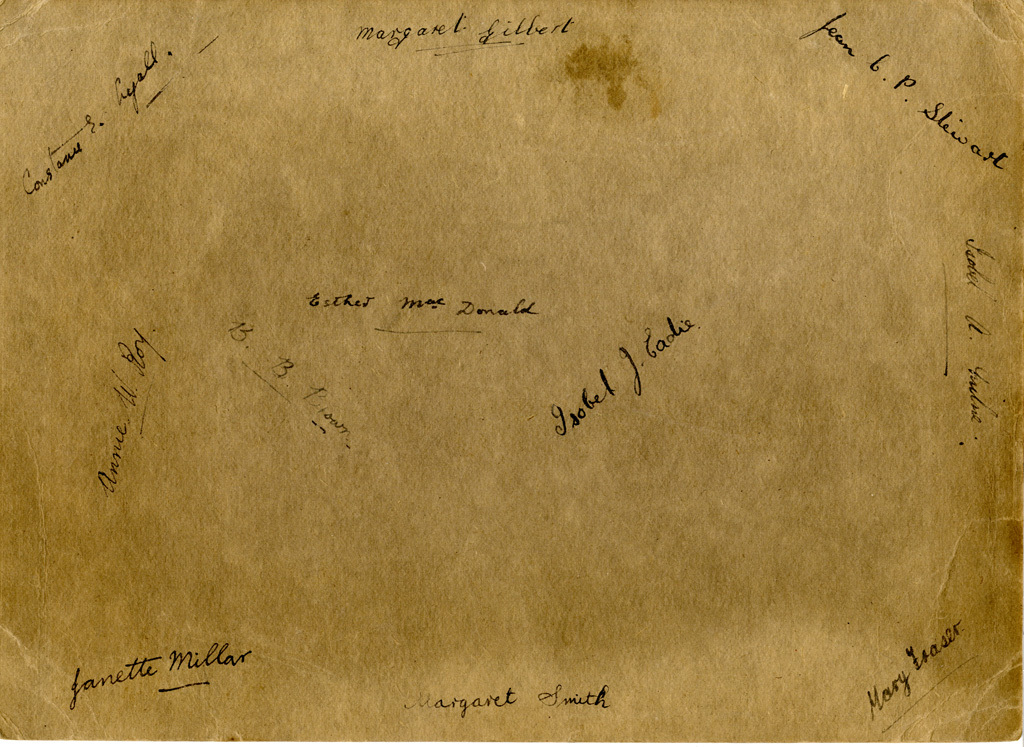 Margaret Gilbert
Constance E. Lyall.
Jean C. P. Stewart
Isobel A.
Esther Mac Donald
Isobel J. Eadie.
B. B.
Annie W. Roy.
Janette Millar
Margaret Smith
Mary Fraser